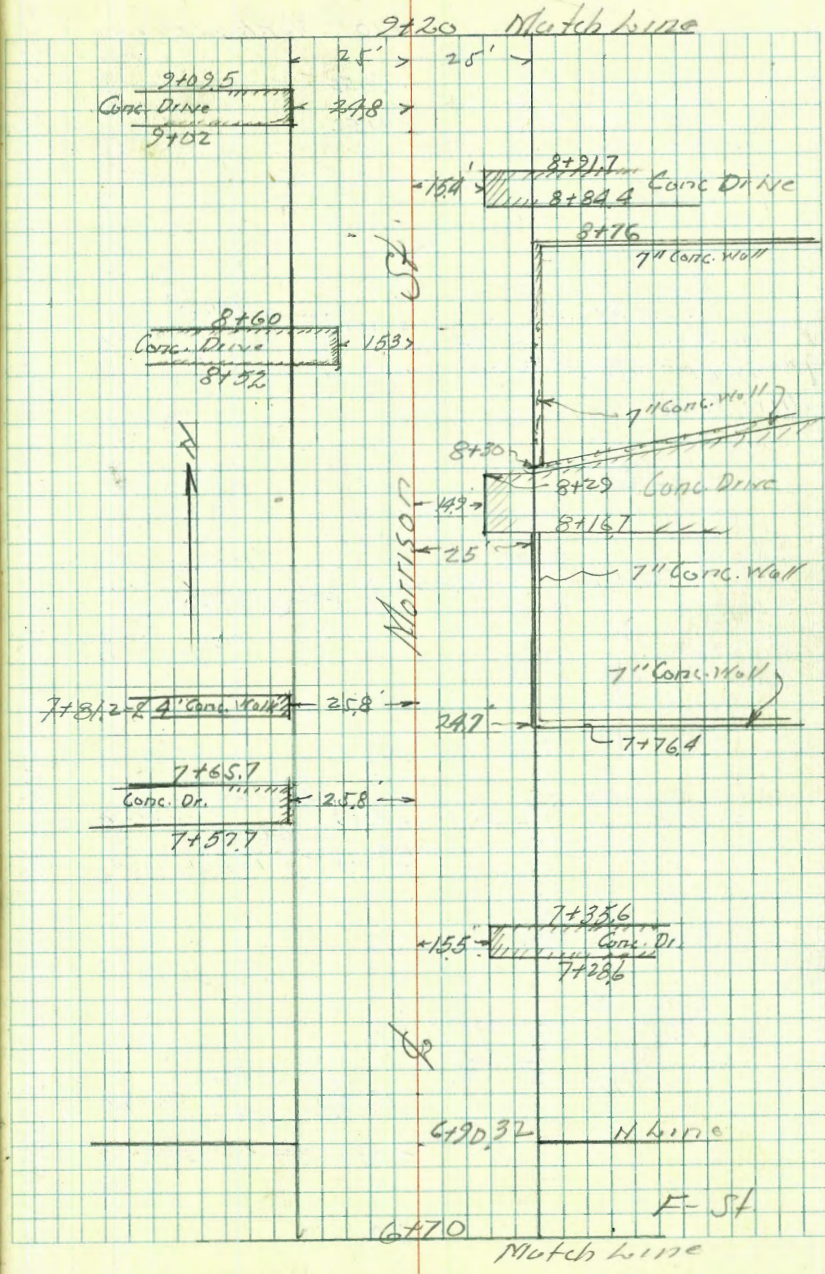 9+20 Match Line
25' 25'
9+09.5
Conc. Drive
24.8
9+02
8+91.7
15.4'
Conc Drive
8+84.4
8+76
7" Conc. Wall
St.
8+60
Conc. Drive
15.3
8+52
7" Conc. Wall
N
8+30
8+29
Conc Drive
14.9
8+16.7
25'
7" Conc. Wall
Morrison
7" Conc. Wall
7+81.2=
4' Conc. Walk
25.8'
24.7'
7+76.4
7+65.7
Conc. Dr.
25.8'
7+57.7
7+35.6
15.5'
Conc. Dr.
7+28.6
6+90.32
N Line
F- St
6+70
Match Line